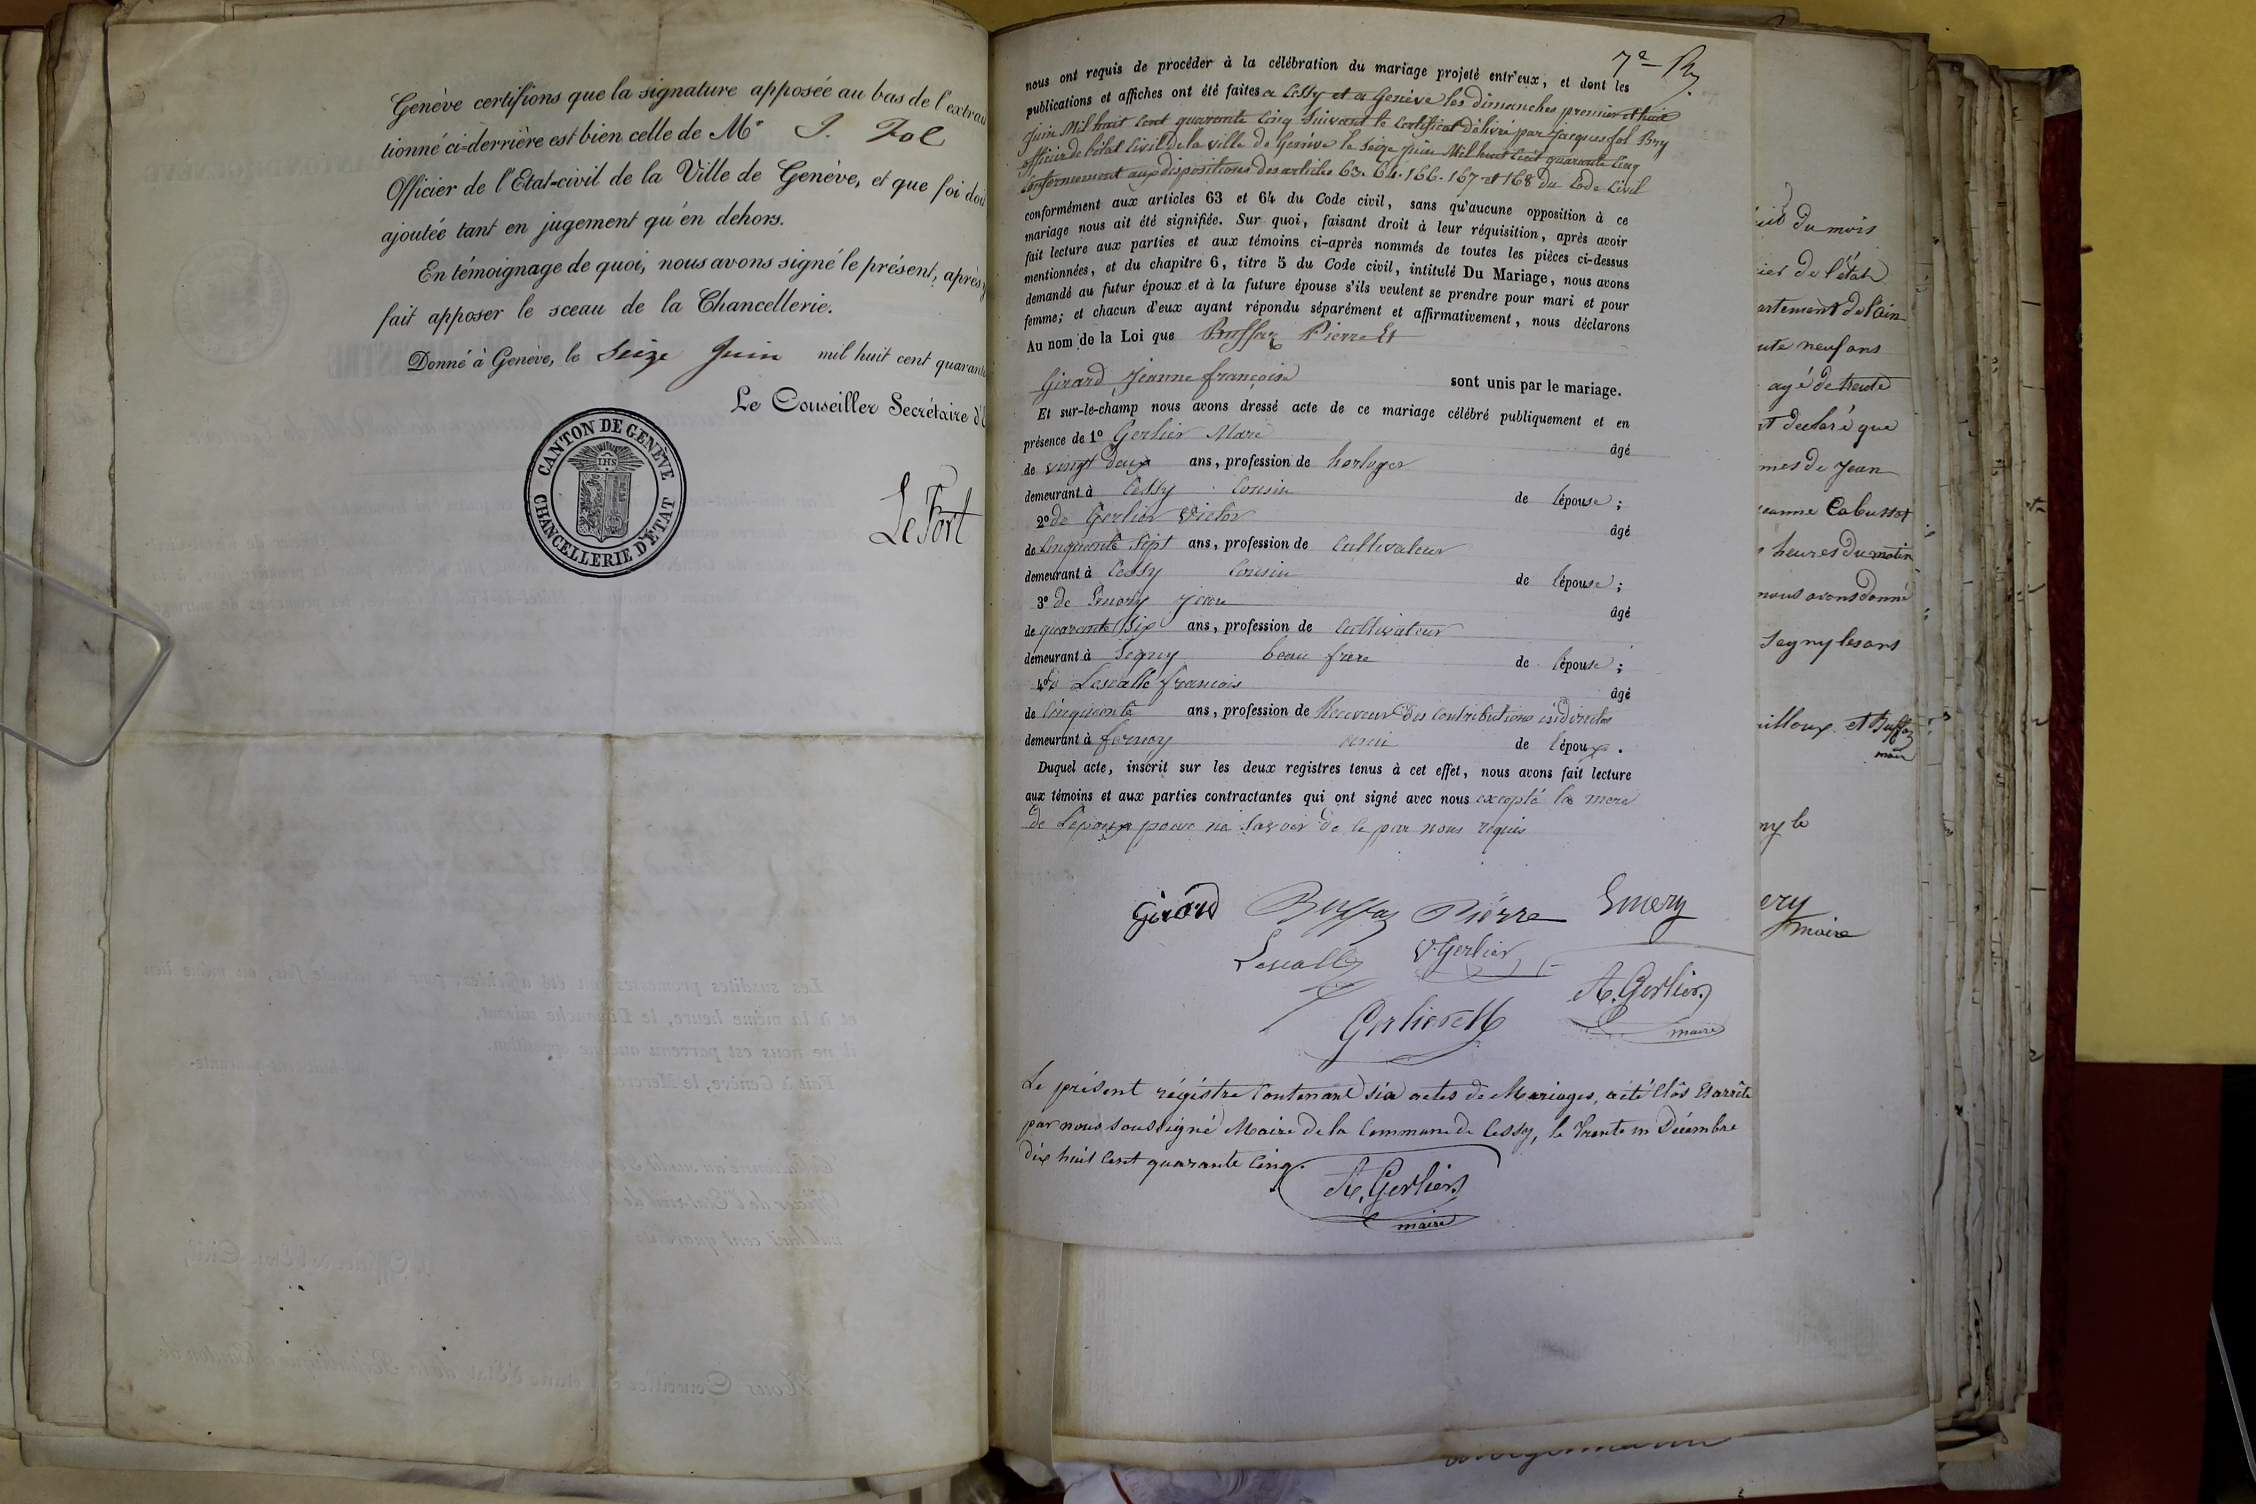 Genève certifions que la signature apposée au bas de l'extrai
tionné ci-derrière est bien celle de Mr J. Fol
Officier de l'Etat-civil de la Ville de Genève, et que foi doi
ajoutée tant en jugement qu'en dehors.
En témoignage de quoi, nous avons signé le présent, après y
fait apposer le sceau de la Chancellerie.
Donné à Genève, le Seize Juin mil huit cent quarante
Le Conseiller Secrétaire d'E
CANTON DE GENÈVE
IHS
CHANCELLERIE D'ÉTAT
Le Fort
7e
nous ont requis de procéder à la célébration du mariage projeté entr'eux, et dont les
publications et affiches ont été faites a Cessy et a Genève les dimanches premier et huit
Juin Mil huit Cent quarante Cinq Suivant le Certificat délivré par Jacques fol
officier de l'état Civil de la ville de Genève le Seize Juin Mil huit Cent quarante Cinq
Conformement aux dispositions des articles 63. 64. 166. 167 et 168 du Code Civil
conformément aux articles 63 et 64 du Code civil, sans qu'aucune opposition à ce
mariage nous ait été signifiée. Sur quoi, faisant droit à leur réquisition, après avoir
fait lecture aux parties et aux témoins ci-après nommés de toutes les pièces ci-dessus
mentionnées, et du chapitre 6, titre 5 du Code civil, intitulé Du Mariage, nous avons
demandé au futur époux et à la future épouse s'ils veulent se prendre pour mari et pour
femme; et chacun d'eux ayant répondu séparément et affirmativement, nous déclarons
Au nom de la Loi que Buffaz Pierre Et
Girard Jeanne françoise sont unis par le mariage.
Et sur-le-champ nous avons dressé acte de ce mariage célébré publiquement et en
présence de 1º Gerlier Marc âgé
de vingt deux ans, profession de horloger
demeurant à Cessy Cousin de l'épouse;
2º de Gerlier Victor âgé
de Cinquante Sept ans, profession de Cultivateur
demeurant à Cessy Cousin de l'épouse;
3º de Emery Jean âgé
de quarante Six ans, profession de Cultivateur
demeurant à Segny beau frere de l'épouse;
4º de Lescalle francois âgé
de Cinquante ans, profession de Receveur des Contributions indirectes
demeurant à ferney ami de l'époux.
Duquel acte, inscrit sur les deux registres tenus à cet effet, nous avons fait lecture
aux témoins et aux parties contractantes qui ont signé avec nous excepté la mere
de l'époux pour ne Savoir de ce par nous requis
Girard Buffaz Pierre Emery
Lescalle V. Gerlier
A. Gerlier
maire
Gerlier M
Le présent régistre Contenant six actes de Mariages, a été Clôs et arrêté
par nous Soussigné Maire de la Commune de Cessy, le Trente un Décembre
dix huit Cent quarante Cinq.
A. Gerlier
maire
du mois
ier de l'état
artement de l'ain
nte neuf ans
agé de trente
t declaré que
mes de Jean
eanne Cabussat
heures du matin
nous avons donné
Segny les ans
uilloux et Buffaz
maire
ny le
ery
maire